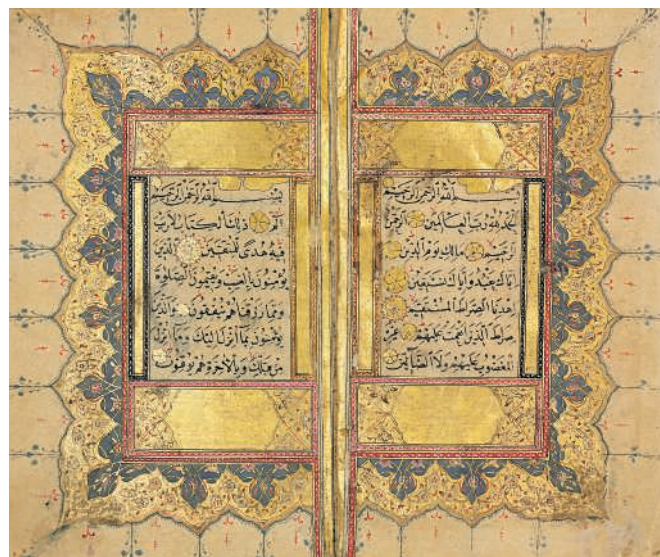 بِسْمِ اللَّهِ الرَّحْمَنِ الرَّحِيمِ
اَلْحَمْدُ لِلَّهِ رَبِّ الْعَالَمِينَ الرَّحْمَنِ
الرَّحِيمِ مَالِكِ يَوْمِ الدِّينِ
اِيَّاكَ نَعْبُدُ وَاِيَّاكَ نَسْتَعِينُ
اِهْدِنَا الصِّرَاطَ الْمُسْتَقِيمَ
صِرَاطَ الَّذِينَ اَنْعَمْتَ عَلَيْهِمْ غَيْرِ
الْمَغْضُوبِ عَلَيْهِمْ وَلَا الضَّالِّينَ
بِسْمِ اللَّهِ الرَّحْمَنِ الرَّحِيمِ
الم ذَلِكَ الْكِتَابُ لَا رَيْبَ
فِيهِ هُدًى لِلْمُتَّقِينَ الَّذِينَ
يُؤْمِنُونَ بِالْغَيْبِ وَيُقِيمُونَ الصَّلوةَ
وَمِمَّا رَزَقْنَاهُمْ يُنْفِقُونَ وَالَّذِينَ
يُؤْمِنُونَ بِمَا اُنْزِلَ اِلَيْكَ وَمَا اُنْزِلَ
مِنْ قَبْلِكَ وَبِالْاخِرَةِ هُمْ يُوقِنُونَ